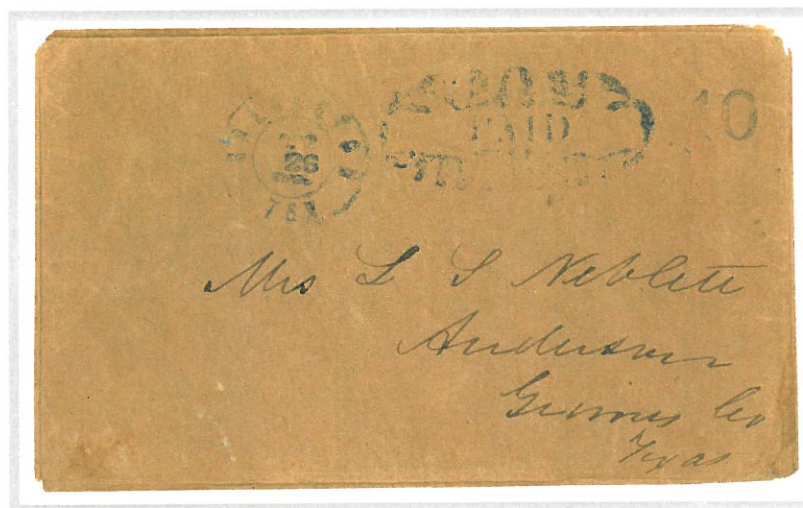 PAID
10
26
TEX
Mrs L S Neblett
Anderson
Grimes Co
Texas